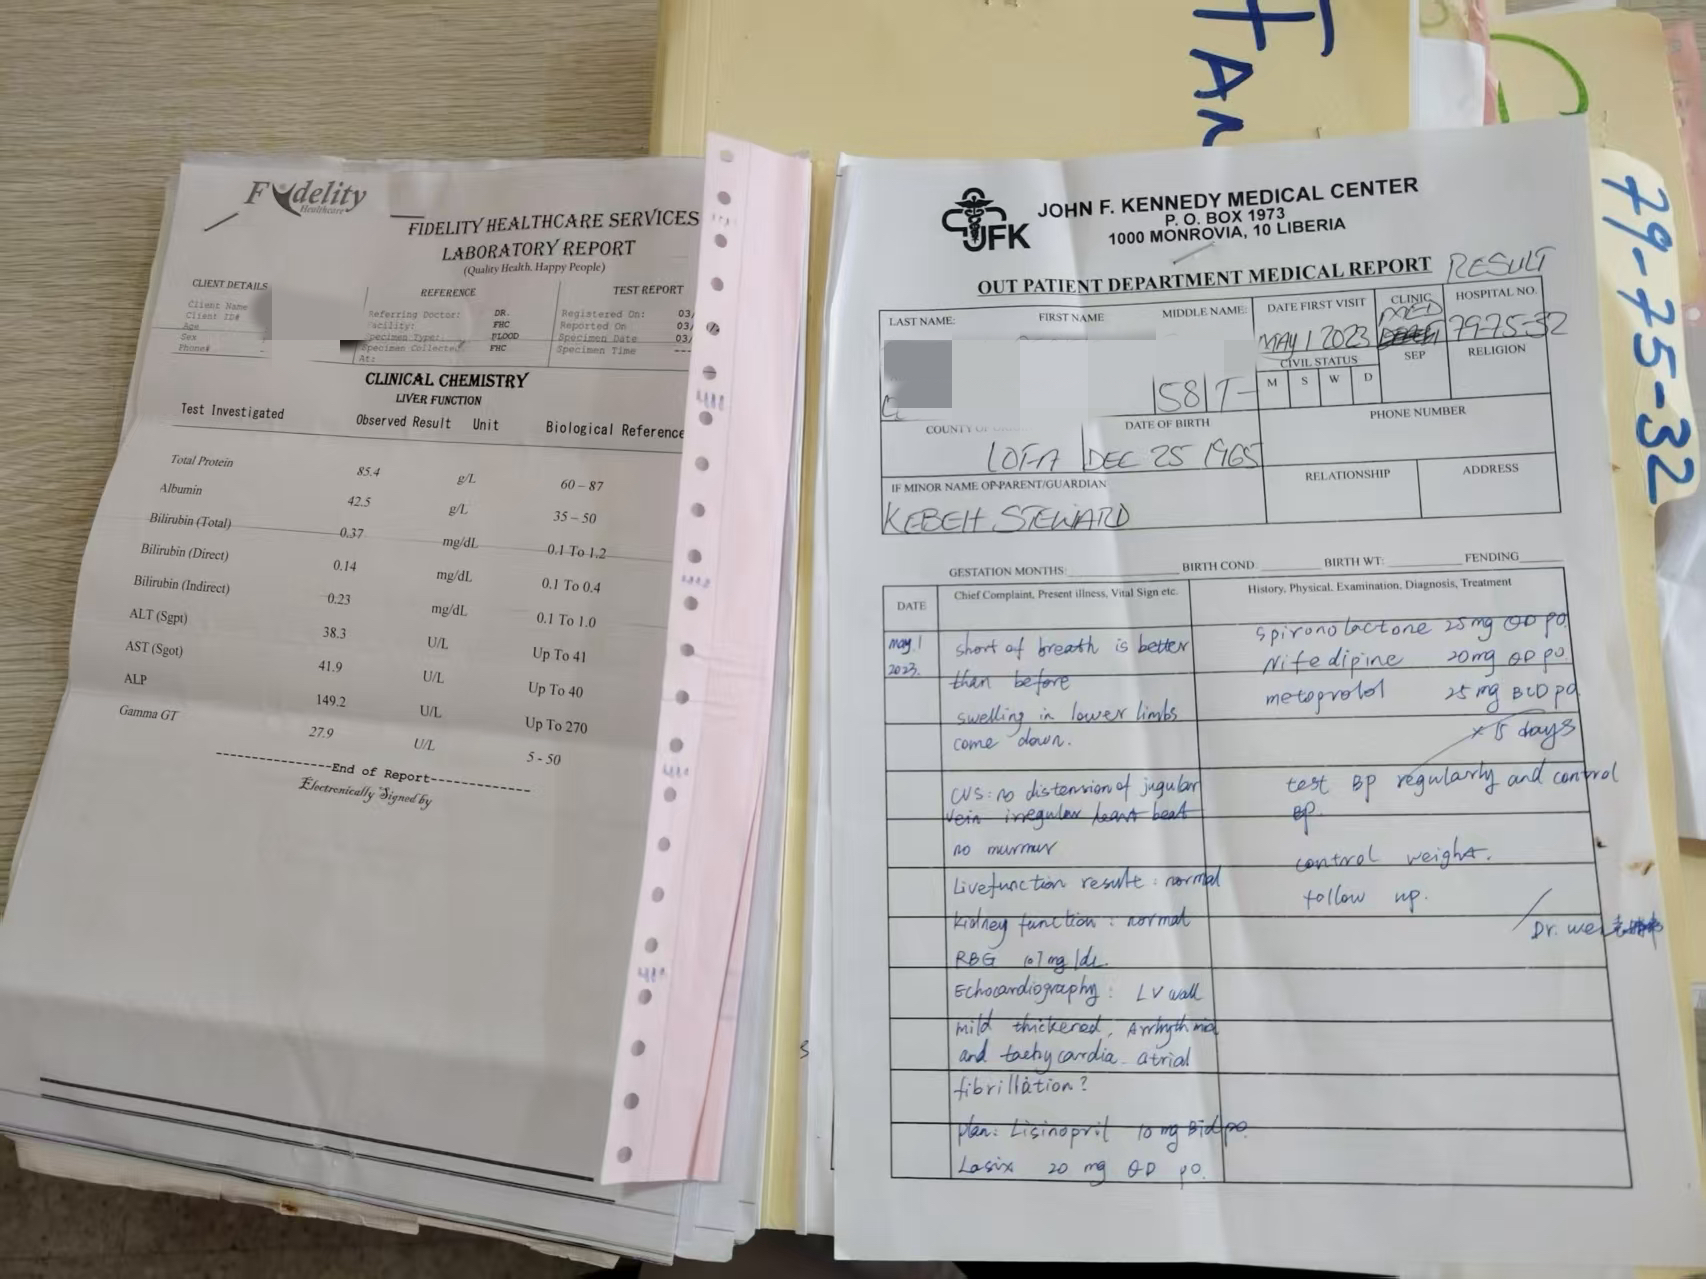 TAR
79-75-32
Fidelity
Healthcare
FIDELITY HEALTHCARE SERVICES
LABORATORY REPORT
(Quality Health, Happy People)
CLIENT DETAILS
REFERENCE
TEST REPORT
Client Name
Client ID#
Age
Sex
Phone#
Referring Doctor: DR.
Facility: FHC
Specimen Type: BLOOD
Specimen Collected FHC
At:
Registered On: 03/
Reported On 03/
Specimen Date 03/
Specimen Time ---
CLINICAL CHEMISTRY
LIVER FUNCTION
Test Investigated Observed Result Unit Biological Reference
Total Protein 85.4 g/L 60 – 87
Albumin 42.5 g/L 35 – 50
Bilirubin (Total) 0.37 mg/dL 0.1 To 1.2
Bilirubin (Direct) 0.14 mg/dL 0.1 To 0.4
Bilirubin (Indirect) 0.23 mg/dL 0.1 To 1.0
ALT (Sgpt) 38.3 U/L Up To 41
AST (Sgot) 41.9 U/L Up To 40
ALP 149.2 U/L Up To 270
Gamma GT 27.9 U/L 5 - 50
End of Report
Electronically Signed by
JFK
JOHN F. KENNEDY MEDICAL CENTER
P. O. BOX 1973
1000 MONROVIA, 10 LIBERIA
OUT PATIENT DEPARTMENT MEDICAL REPORT RESULT
LAST NAME: FIRST NAME MIDDLE NAME: DATE FIRST VISIT CLINIC HOSPITAL NO.
MAY 1 2023 MED 79-75-32
CIVIL STATUS SEP RELIGION
M S W D
58 T-
COUNTY OF DATE OF BIRTH PHONE NUMBER
LOFA DEC 25 1965
IF MINOR NAME OF PARENT/GUARDIAN RELATIONSHIP ADDRESS
KEBEH STEWARD
GESTATION MONTHS: BIRTH COND: BIRTH WT: FENDING
DATE Chief Complaint, Present illness, Vital Sign etc. History, Physical, Examination, Diagnosis, Treatment
May 1
2023.
short of breath is better
than before
swelling in lower limbs
come down.
CVS: no distension of jugular
vein irregular heart beat
no murmur
Livefunction result: normal
kidney function: normal
RBG 107 mg/dL.
Echocardiography: LV wall
mild thickered, Arrhythmia
and tachycardia atrial
fibrillation?
plan: Lisinopril 10 mg Bid po.
Lasix 20 mg QD po.
spironolactone 25mg QD po.
Nifedipine 20mg QD po.
metoprolol 25 mg BID po
x 15 days
test BP regularly and control
BP.
control weight.
follow up.
Dr. wei